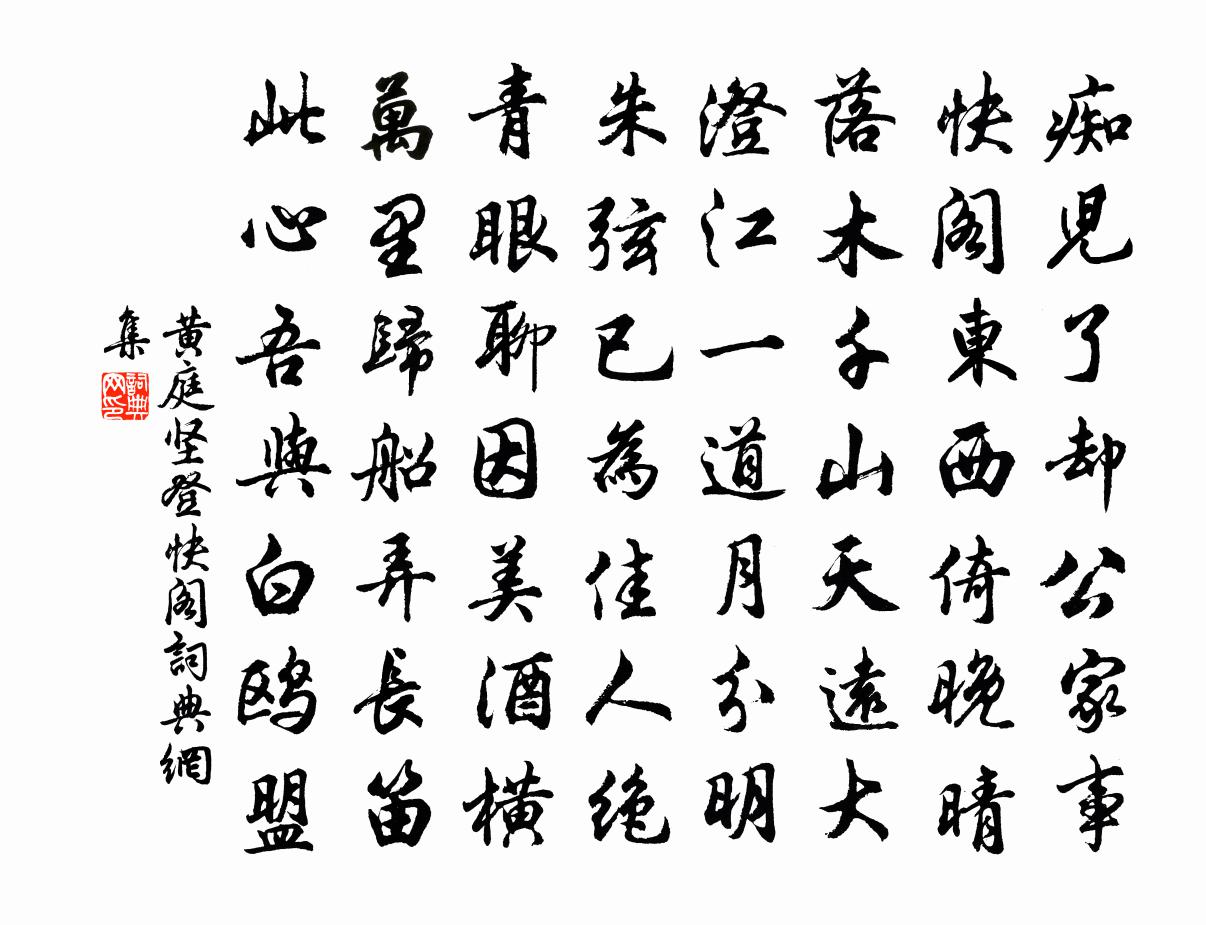 痴兒了却公家事
快閣東西倚晚晴
落木千山天遠大
澄江一道月分明
朱弦已為佳人絶
青眼聊因美酒橫
萬里歸船弄長笛
此心吾與白鷗盟
黄庭坚登快阁詞典網
集
詞典
网印